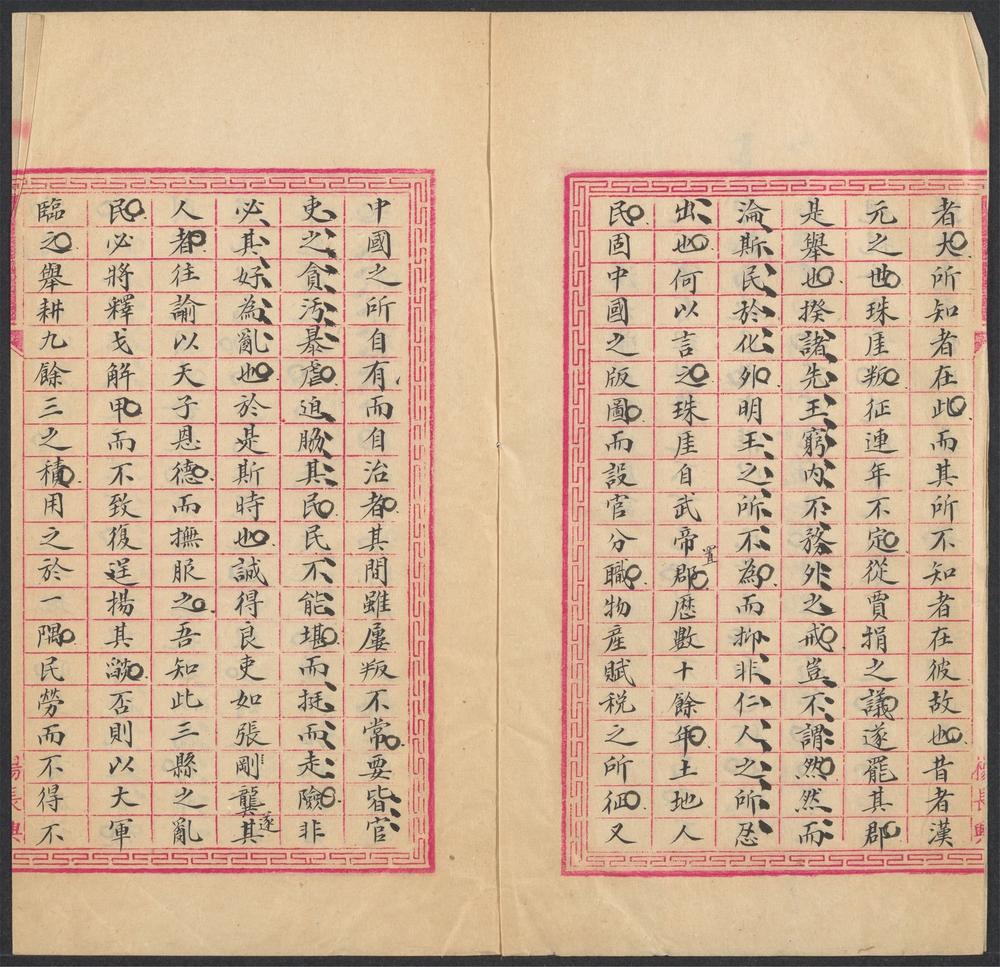 者大所知者在此而其所不知者在彼故也昔者漢
元之世珠厓叛征連年不定從賈捐之議遂罷其郡
是舉也揆諸先王窮内不務外之戒豈不謂然然而
淪斯民於化外明王之所不為而抑非仁人之所忍
出也何以言之珠厓自武帝置郡歷數十餘年土地人
民固中國之版圖而設官分職物産賦税之所征又
中國之所自有而自治者其間雖屢叛不常要皆官
吏之貪污暴虐迫脇其民民不能堪而挺而走險非
必其好為亂也於是斯時也誠得良吏如張剛龔遂其
人者往諭以天子恩德而撫服之吾知此三縣之亂
民必將釋戈解甲而不致復逞揚其燄否則以大軍
臨之舉耕九餘三之積用之於一隅民勞而不得不